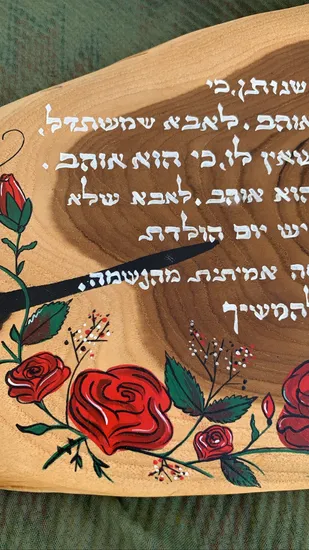 שנותן, כי
אוהב. לאבא שמשתדל,
שאין לו, כי הוא אוהב.
הוא אוהב. לאבא שלא
יש יום הולדת
אמיתית מהנשמה.
להמשיך